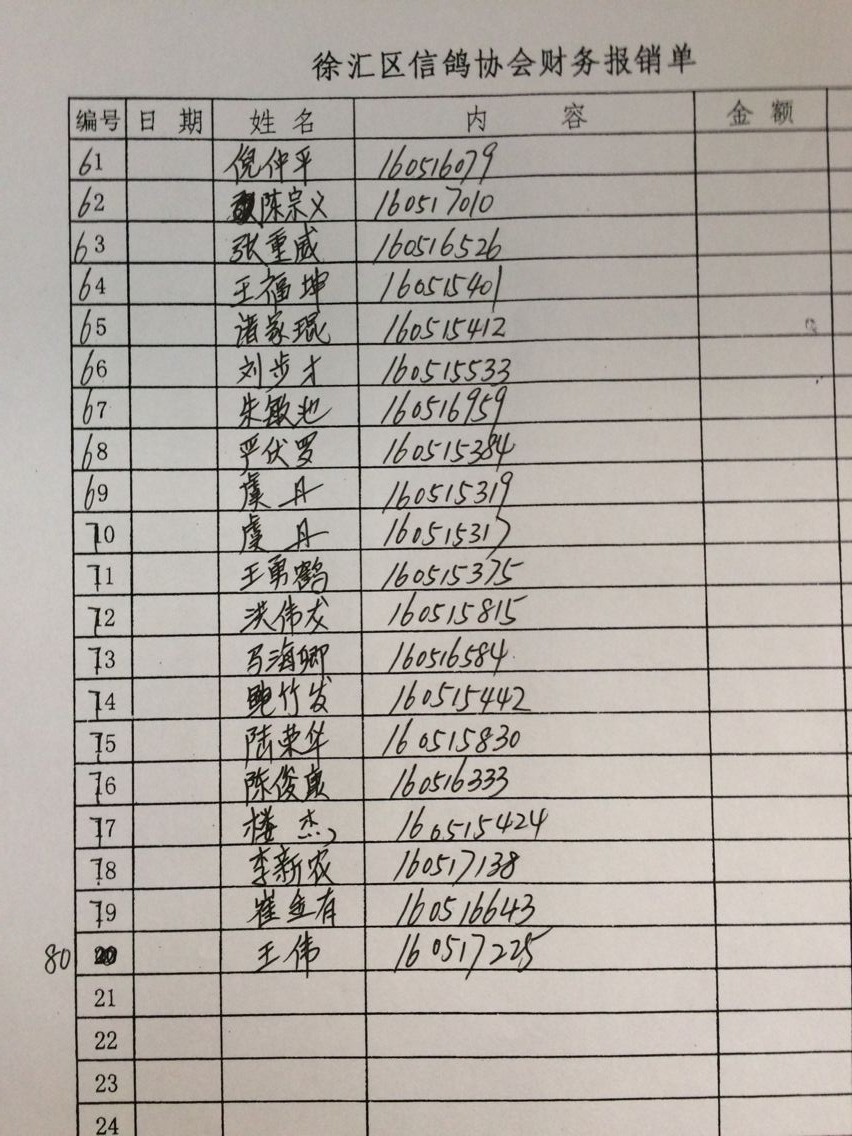 徐汇区信鸽协会财务报销单
编号 日期 姓名 内容 金额
61 倪仲平 160516079
62 陈宗义 160517010
63 张重威 160516526
64 王福坤 160515401
65 诸家琨 160515412
66 刘步才 160515533
67 朱敏池 160516959
68 严伏罗 160515384
69 虞丹 160515319
70 虞丹 160515317
71 王勇鹤 160515375
72 洪伟成 160515815
73 马海卿 160516584
74 鲍竹发 160515442
75 陆荣华 160515830
76 陈俊康 160516333
77 楼杰 160515424
78 李新农 160517138
79 崔金有 160516643
80 王伟 160517225
21
22
23
24